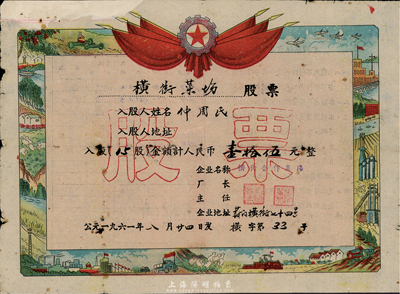 横街菜场 股票
股票
入股人姓名 仲周氏
入股人地址
入股 15 股 金额计人民币 壹拾伍元整
企业名称
厂长
主任
企业地址 横街七十四号
公元一九六一年八月廿四日发 横字第33号
上海阳明拍卖